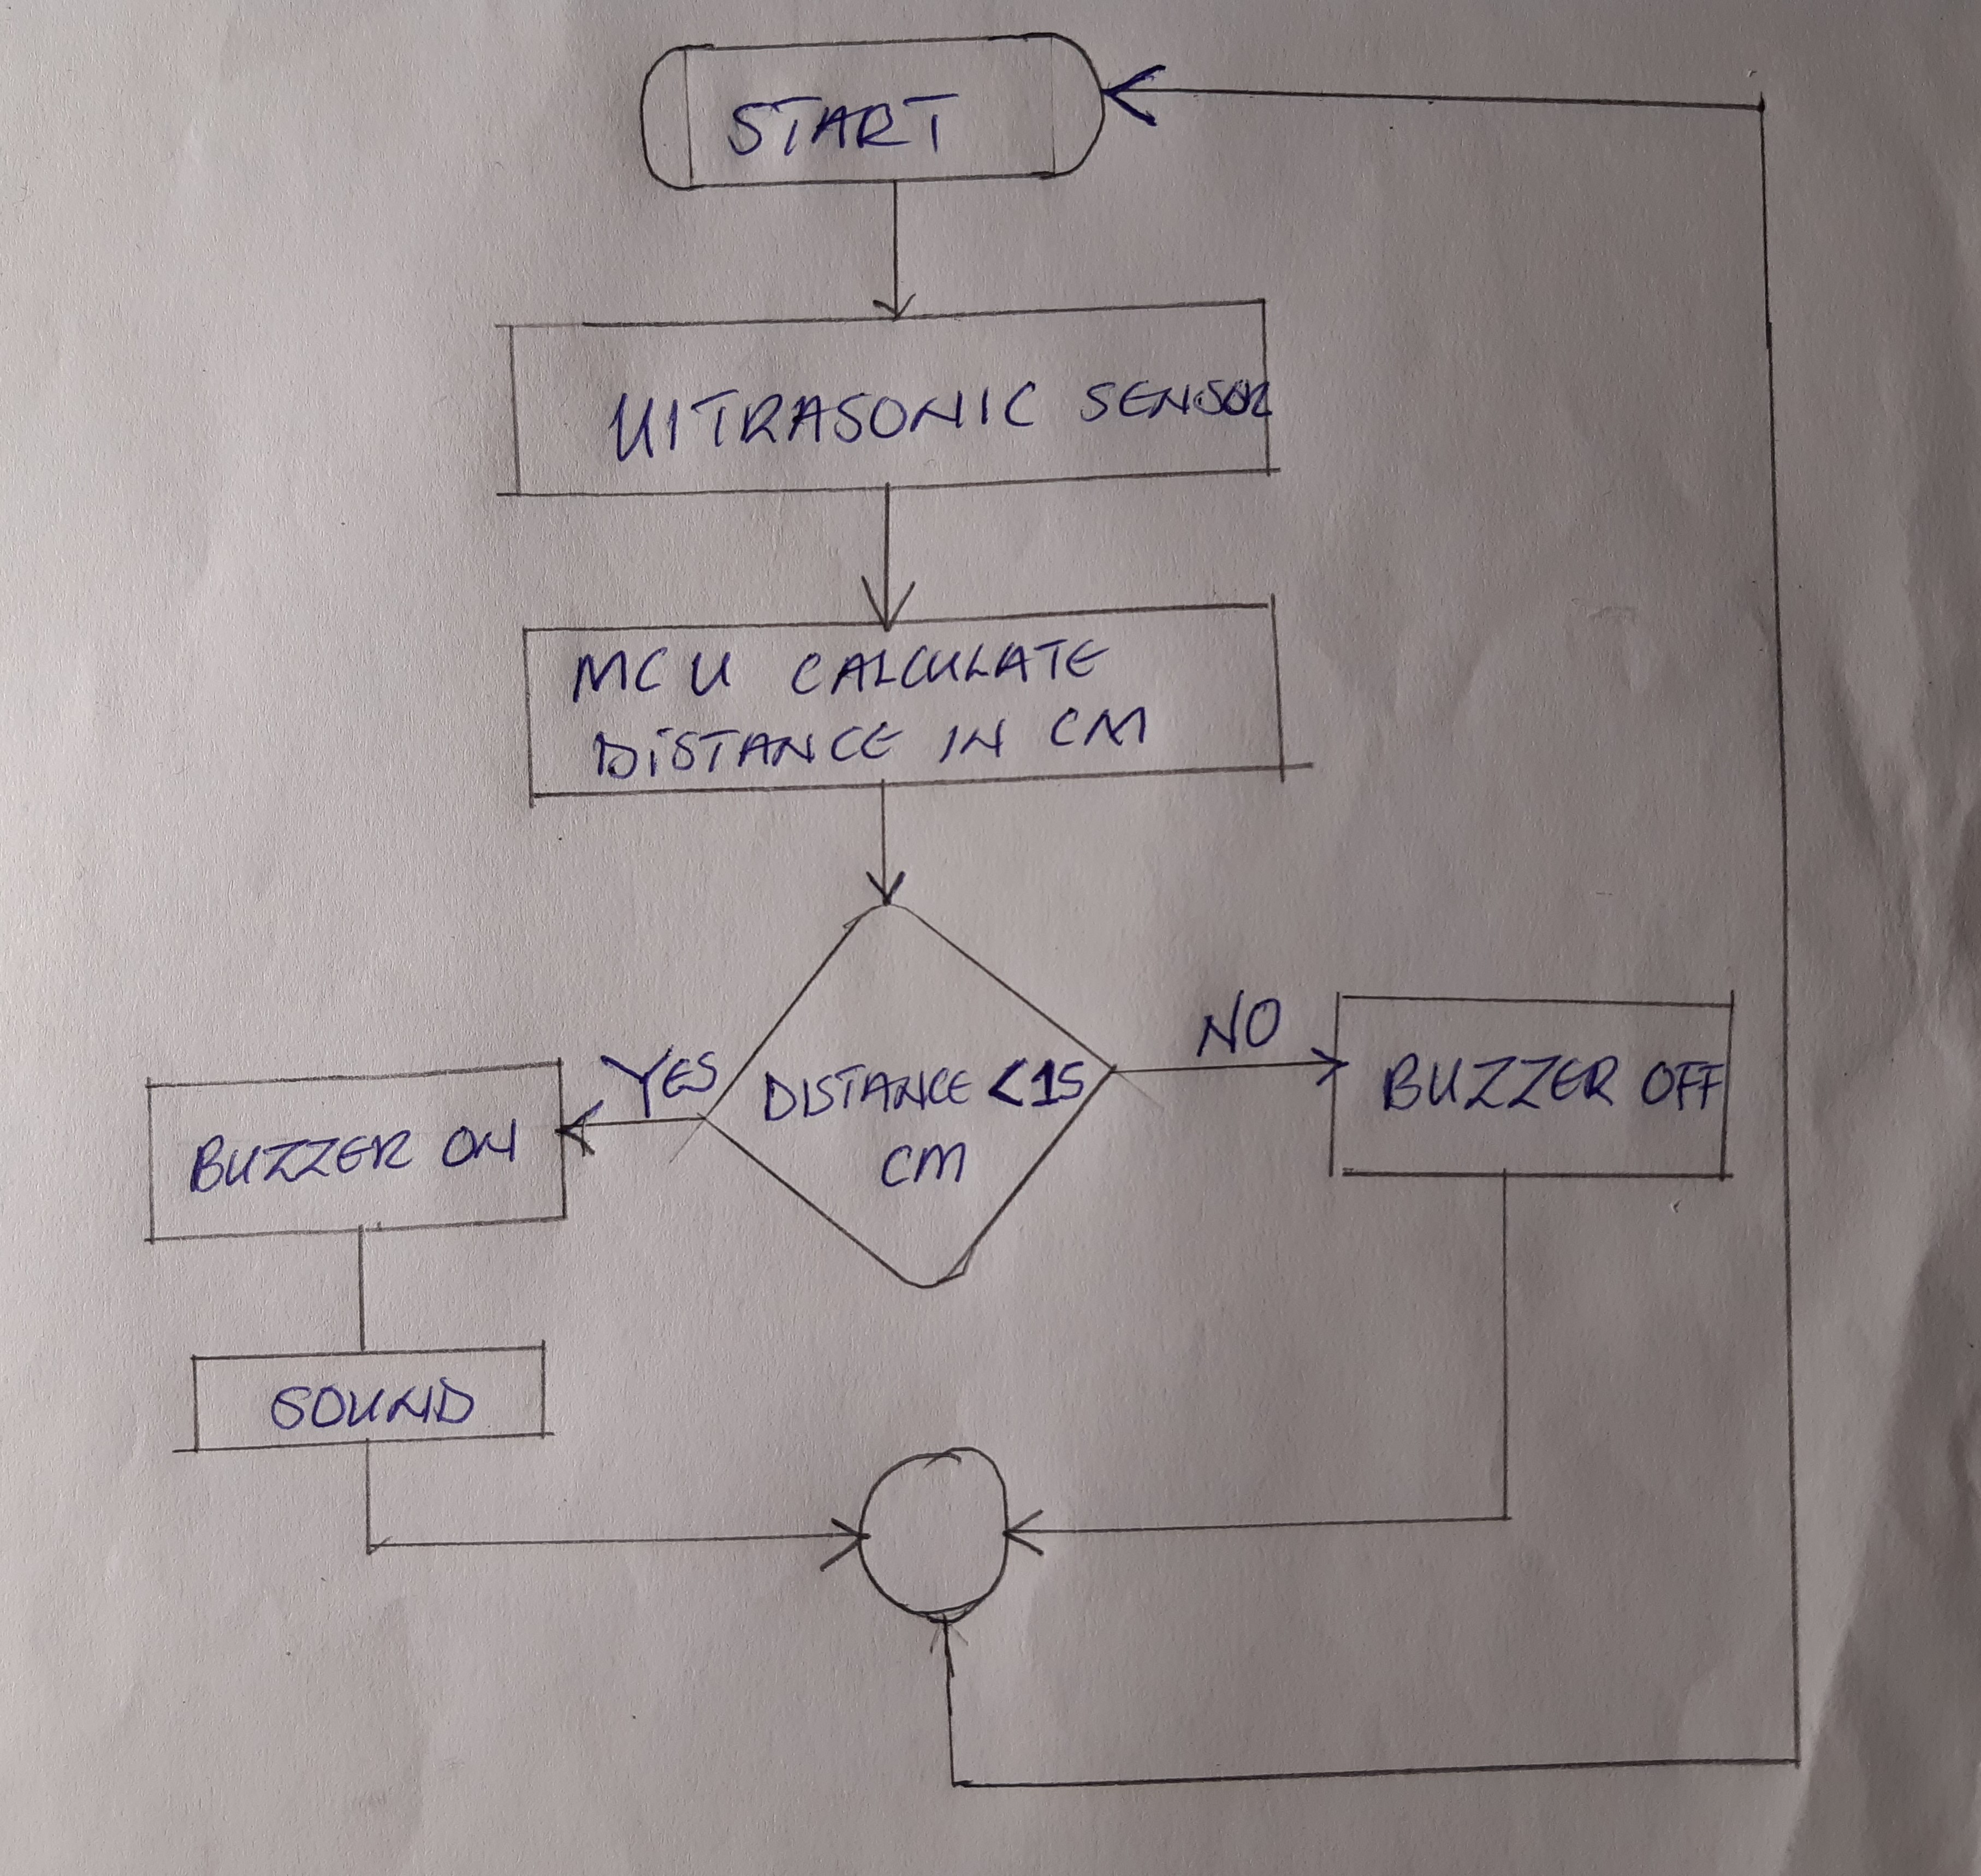 START
UlTRASONIC SENSOR
MCU CALCULATE
DiSTANCE IN CM
YES
NO
DISTANCE <15
CM
BUZZER ON
BUZZER OFF
SOUND